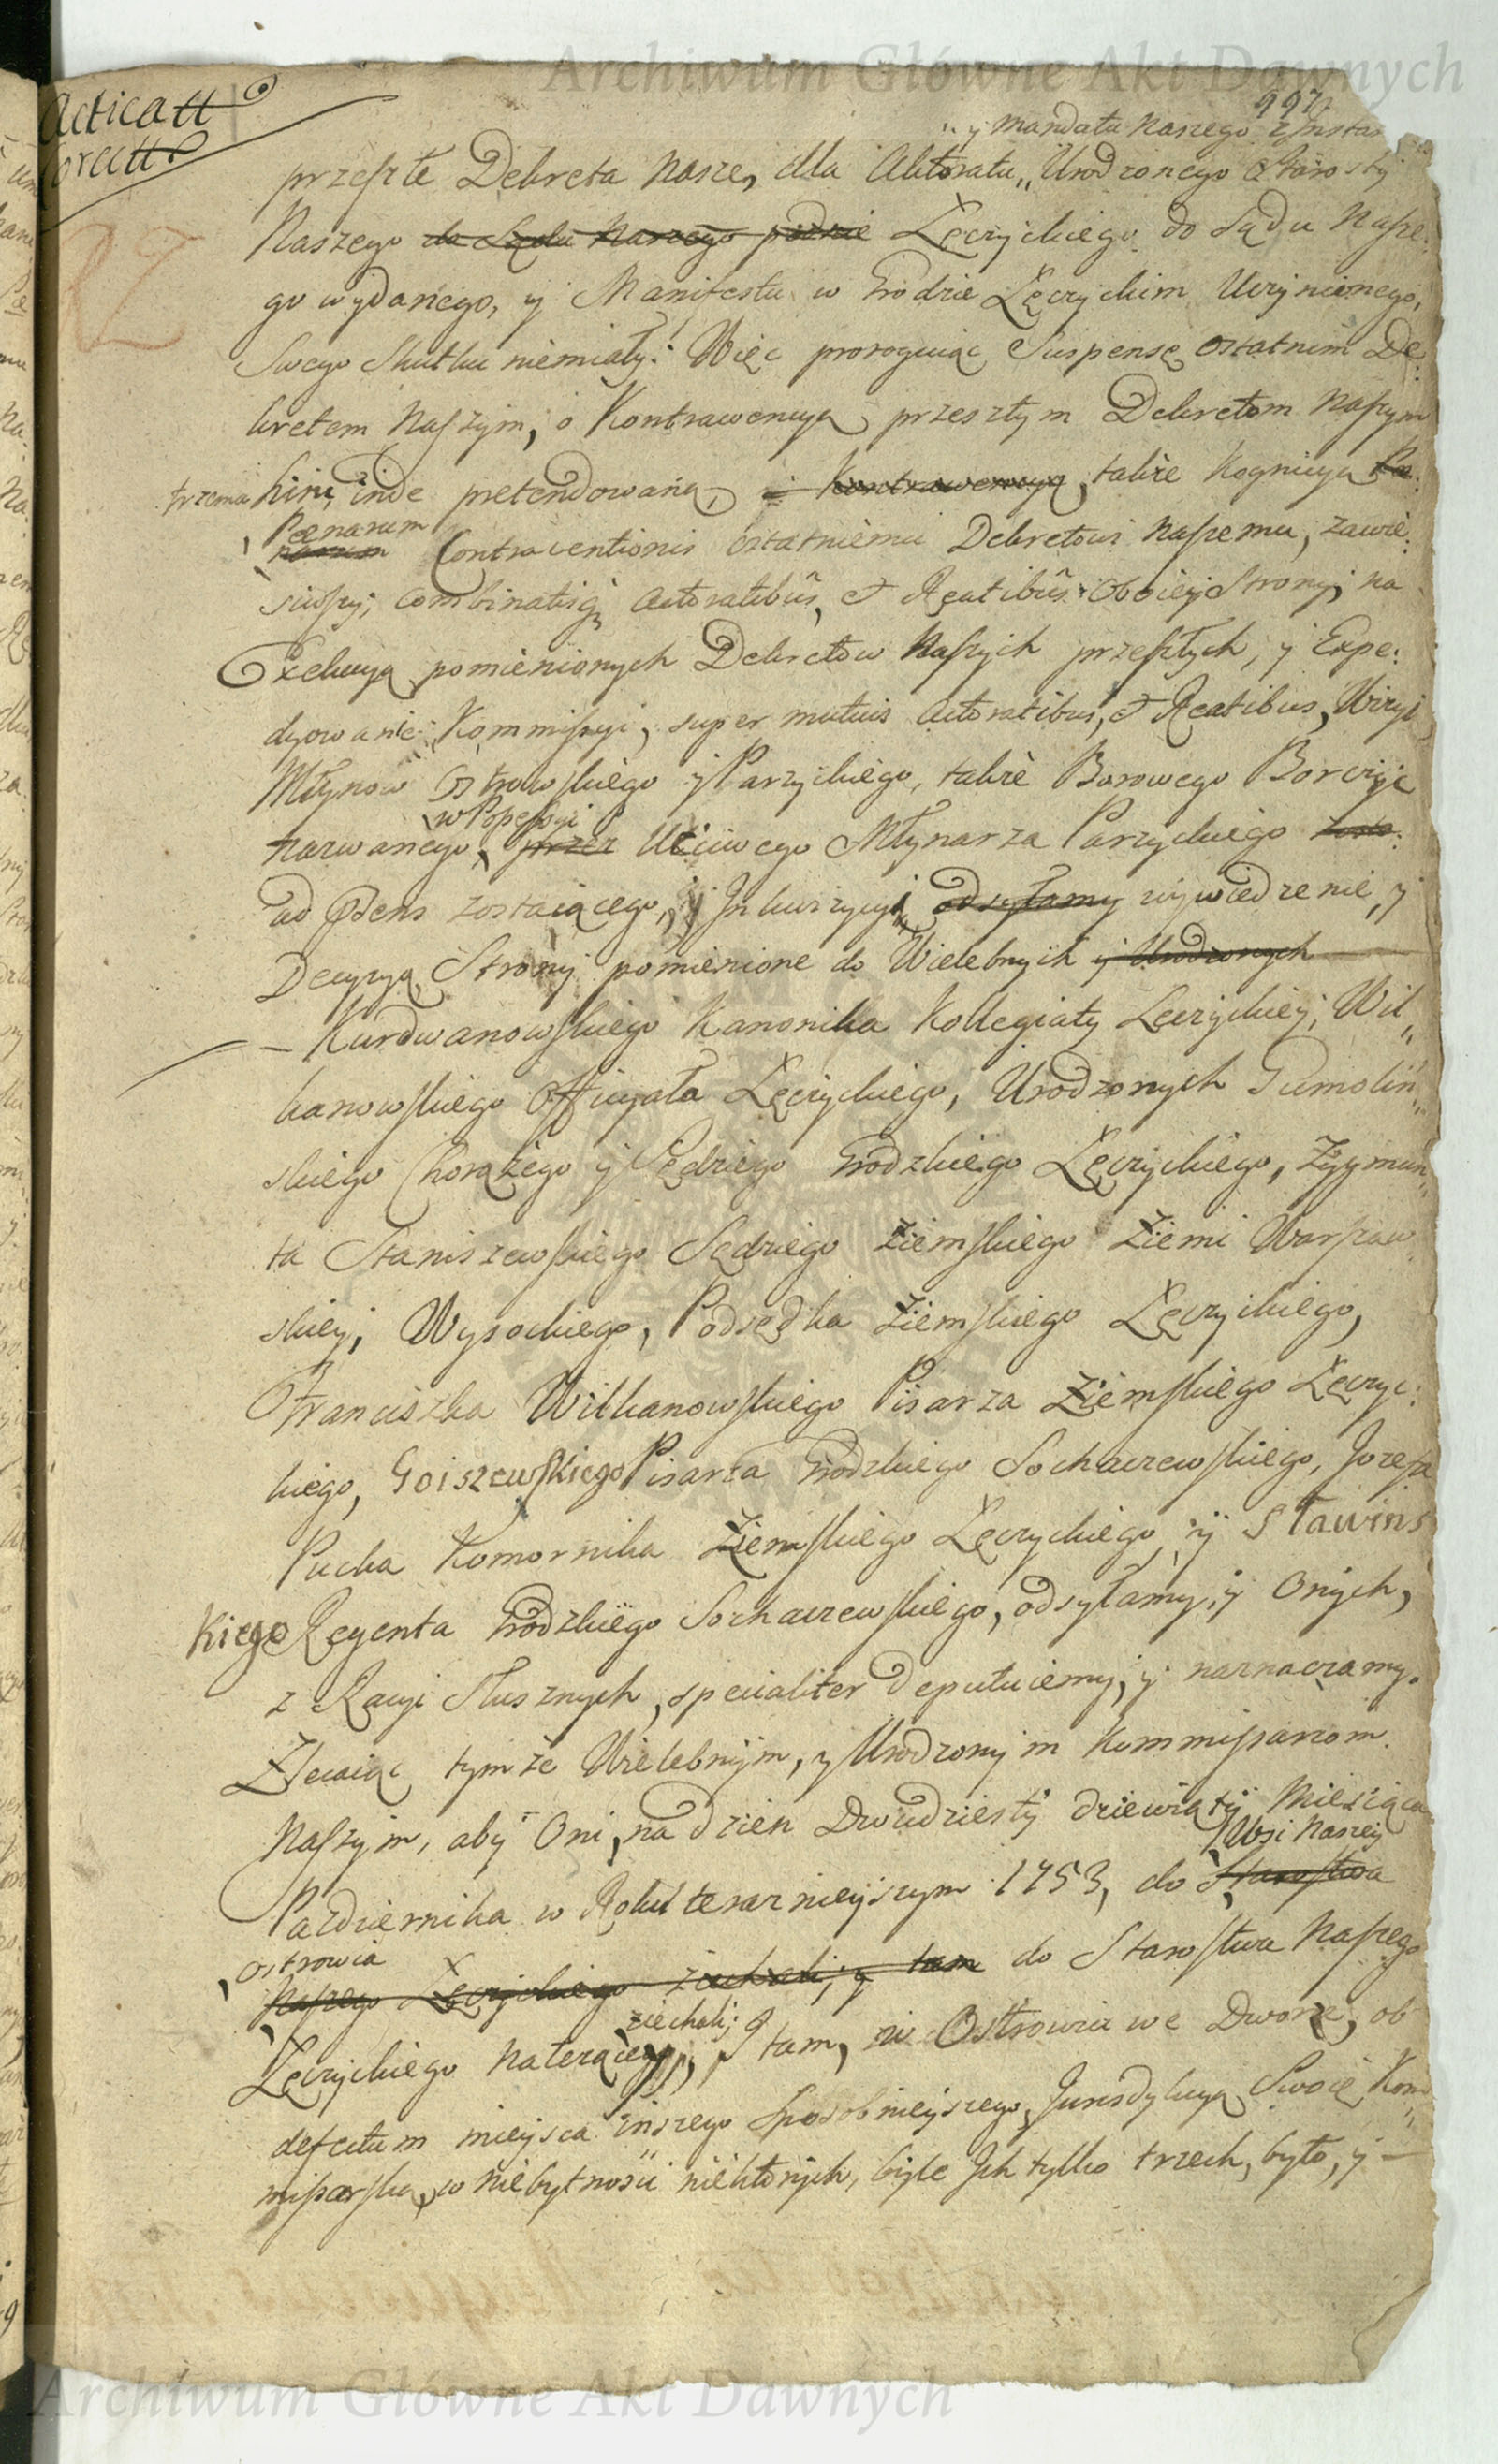 Archiwum Główne Akt Dawnych
997
Acticatt
oratt
y mandatu naszego z Instan
przeszłe Dekreta nasze, dla Aktoratu,, Urodzonego Starosty
Naszego do Sądu naszego Łęczyckiego do Sądu Nasze:
go wydanego, y Manifestu w Grodzie Łęczyckim Uczynionego,
Swego skutku niemiały: Więc proroguiąc Suspensę ostatnim De:
kretem naszym, o Kontrawencyą przeszłym Dekretom naszym
trzema hinc, inde pretendowaną, i Kontrawencyą, także Kognicyą Pæ:
Pænarum
narum Contraventionis ostatniemu Dekretowi naszemu, zawie:
siwszy, combinatisq; Actoratibus, et Reatibus Oboiey Strony, na
Exekucyą pomienionych Dekretow naszych przeszłych, y Expe:
dyowanie Kommissyi, super mutuis Actoratibus, et Reatibus, Wizyi
Młynow Ostrowskiego y Parzyckiego, także Borowego Borczyc
w Possessyi
nazwanego, przez Uczciwego Młynarza Parzyckiego
ad præsens zostaiącego, y Inkwizycyi, odsyłamy wywiedzenie, y
Decyzyą Strony pomienione do Wielebnych y Urodzonych
Kurdwanowskiego Kanonika Kollegiaty Łęczyckiey, Wil,,
kanowskiego Officyała Łęczyckiego, Urodzonych Sumoliń,,
skiego Chorążego y Sędziego Grodzkiego Łęczyckiego, Zygmun,,
ta Staniszewskiego Sędziego Ziemskiego Ziemi Warszaw
skiey, Wysockiego, Podsędka Ziemskiego Łęczyckiego,
Franciszka Wilkanowskiego Pisarza Ziemskiego Łęczyc:
kiego, Goiszewskiego Pisarza Grodzkiego Sochaczewskiego, Jozefa
Pucka Komornika Ziemskiego Łęczyckiego, y Sławins
Kiego Regenta Grodzkiego Sochaczewskiego, odsyłamy, y Onych,
z Racyi Słusznych, specialiter deputuiemy, y naznaczamy.
Zlecaiąc tymże Wielebnym, y Urodzonym Kommissarzom
Naszym, aby Oni, na dzien Dwudziesty dziewiąty Miesiąca
Wsi Naszey
Pazdziernika w Roku teraznieyszym 1753, do Starostwa
Ostrowia
Naszego Łęczyckiego ziechali, y tam do Starostwa Naszego
ziechali;
Łęczyckiego należącey, I tam, w Ostrowiu we Dworze, ob
defectum mieysca inszego sposobnieyszego, Jurisdykcyą Swoię Kom,,
missarską, w niebytnosci niektorych, byle Ich tylko trzech, było, y
Archiwum Główne Akt Dawnych